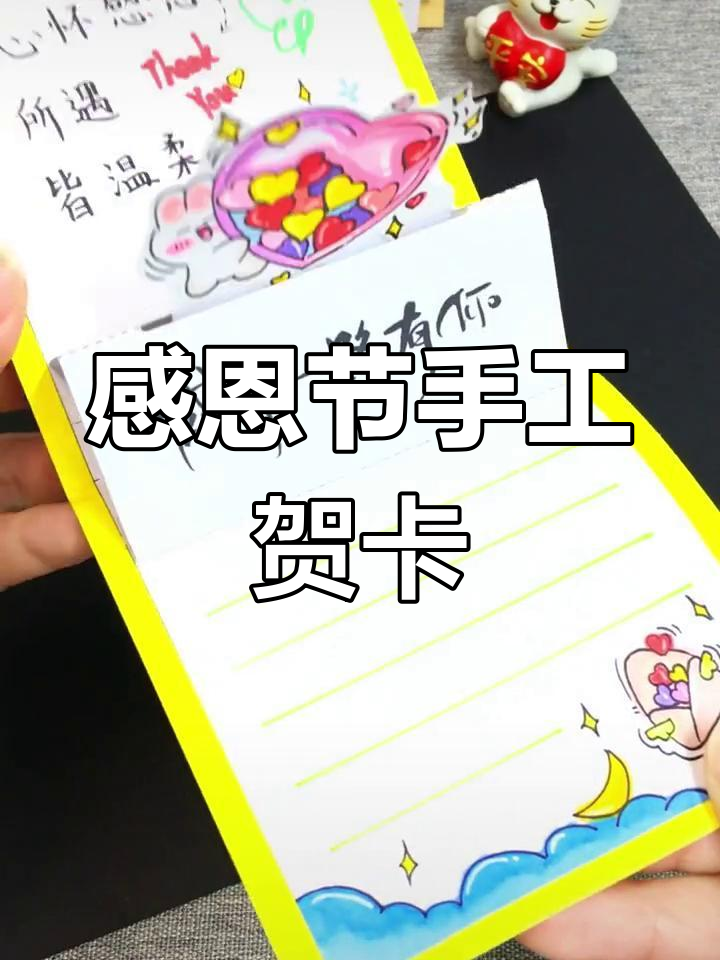 心怀感恩
CP
所遇
Thank
You
皆温柔
平安
有你
感恩节手工
贺卡